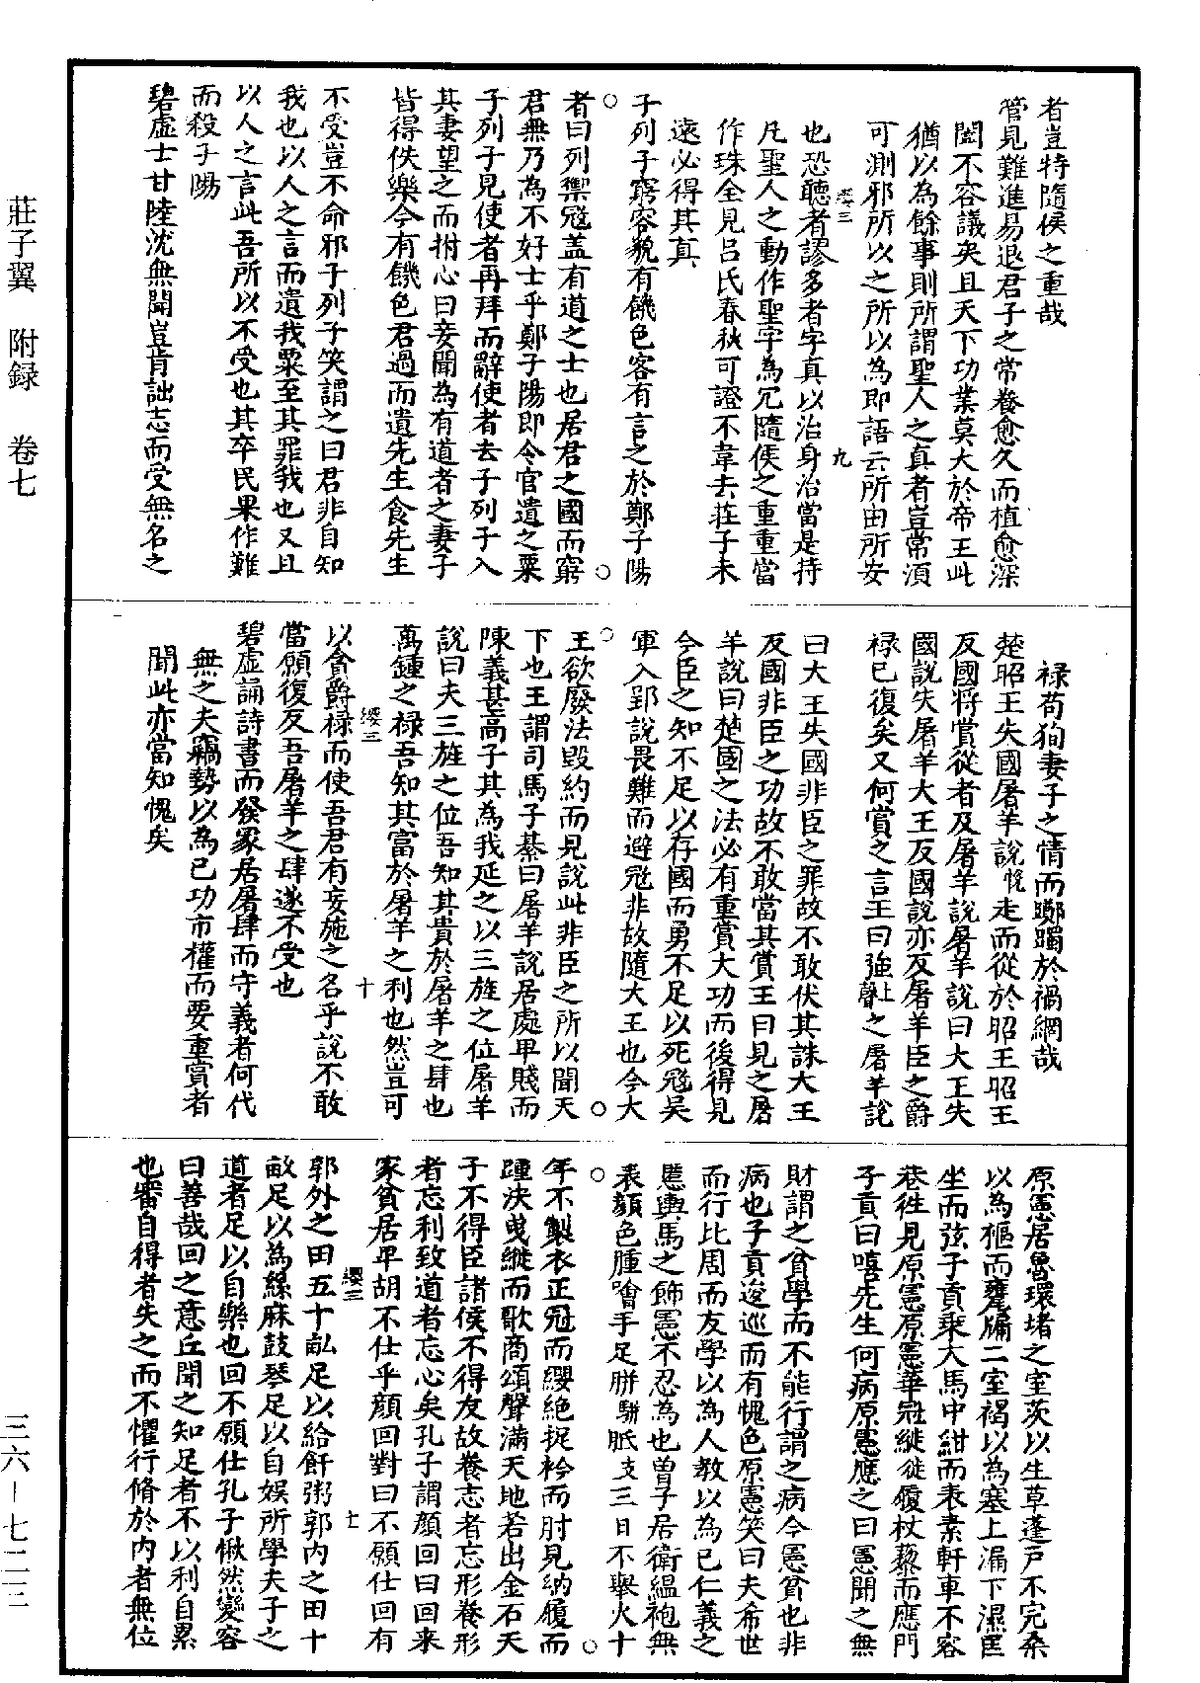 者豈特隨侯之重哉
管見難進易退君子之常養愈久而植愈深
閎不容議矣且天下功業莫大於帝王此
猶以為餘事則所謂聖人之真者豈常湏
可測邪所以之所以為即語云所由所安
纓三
九
也恐聽者謬多者字真以治身治當是持
凡聖人之動作聖字為冗隨侯之重重當
作珠全見呂氏春秋可證不韋去莊子未
遠必得其真
子列子窮容貌有饑色客有言之於鄭子陽
者曰列禦寇盖有道之士也居君之國而窮
君無乃為不好士乎鄭子陽即令官遺之粟
子列子見使者再拜而辭使者去子列子入
其妻望之而拊心曰妾聞為有道者之妻子
皆得佚樂今有饑色君過而遺先生食先生
不受豈不命邪子列子笑謂之曰君非自知
我也以人之言而遺我粟至其罪我也又且
以人之言此吾所以不受也其卒民果作難
而殺子陽
碧虛士甘陸沈無聞豈肯詘志而受無名之
祿苟狥妻子之情而躑躅於禍網哉
楚昭王失國屠羊說悅走而從於昭王昭王
反國将賞從者及屠羊說屠羊說曰大王失
國說失屠羊大王反國說亦反屠羊臣之爵
禄已復矣又何賞之言王曰強上聲之屠羊說
曰大王失國非臣之罪故不敢伏其誅大王
反國非臣之功故不敢當其賞王曰見之屠
羊說曰楚國之法必有重賞大功而後得見
今臣之知不足以存國而勇不足以死寇吳
軍入郢說畏難而避寇非故隨大王也今大
王欲廢法毀約而見說此非臣之所以聞天
下也王謂司馬子綦曰屠羊說居處卑賤而
陳義甚高子其為我延之以三旌之位屠羊
說曰夫三旌之位吾知其貴於屠羊之肆也
萬鍾之禄吾知其富於屠羊之利也然豈可
纓三
十
以貪爵禄而使吾君有妄施之名乎說不敢
當願復反吾屠羊之肆遂不受也
碧虛誦詩書而發冢居屠肆而守義者何代
無之夫竊勢以為己功市權而要重賞者
聞此亦當知愧矣
原憲居魯環堵之室茨以生草蓬戶不完桑
以為樞而甕牖二室褐以為塞上漏下濕匡
坐而弦子貢乘大馬中紺而表素軒車不容
巷徃見原憲原憲華冠縰徙履杖藜而應門
子貢曰嘻先生何病原憲應之曰憲聞之無
財謂之貧學而不能行謂之病今憲貧也非
病也子貢逡巡而有愧色原憲笑曰夫希世
而行比周而友學以為人教以為己仁義之
慝輿馬之飾憲不忍為也曾子居衛緼袍無
表顏色腫噲手足胼駢胝支三日不舉火十
年不製衣正冠而纓絕捉衿而肘見納履而
踵决曳縰而歌商頌聲滿天地若出金石天
子不得臣諸侯不得友故養志者忘形養形
者忘利致道者忘心矣孔子謂顔回曰回来
家貧居卑胡不仕乎顔回對曰不願仕回有
纓三
十一
郭外之田五十畝足以給飦粥郭內之田十
畝足以為絲麻鼓琴足以自娛所學夫子之
道者足以自樂也回不願仕孔子愀然變容
曰善哉回之意丘聞之知足者不以利自累
也審自得者失之而不懼行脩於內者無位
莊子翼　附録　卷七
三六—七二三